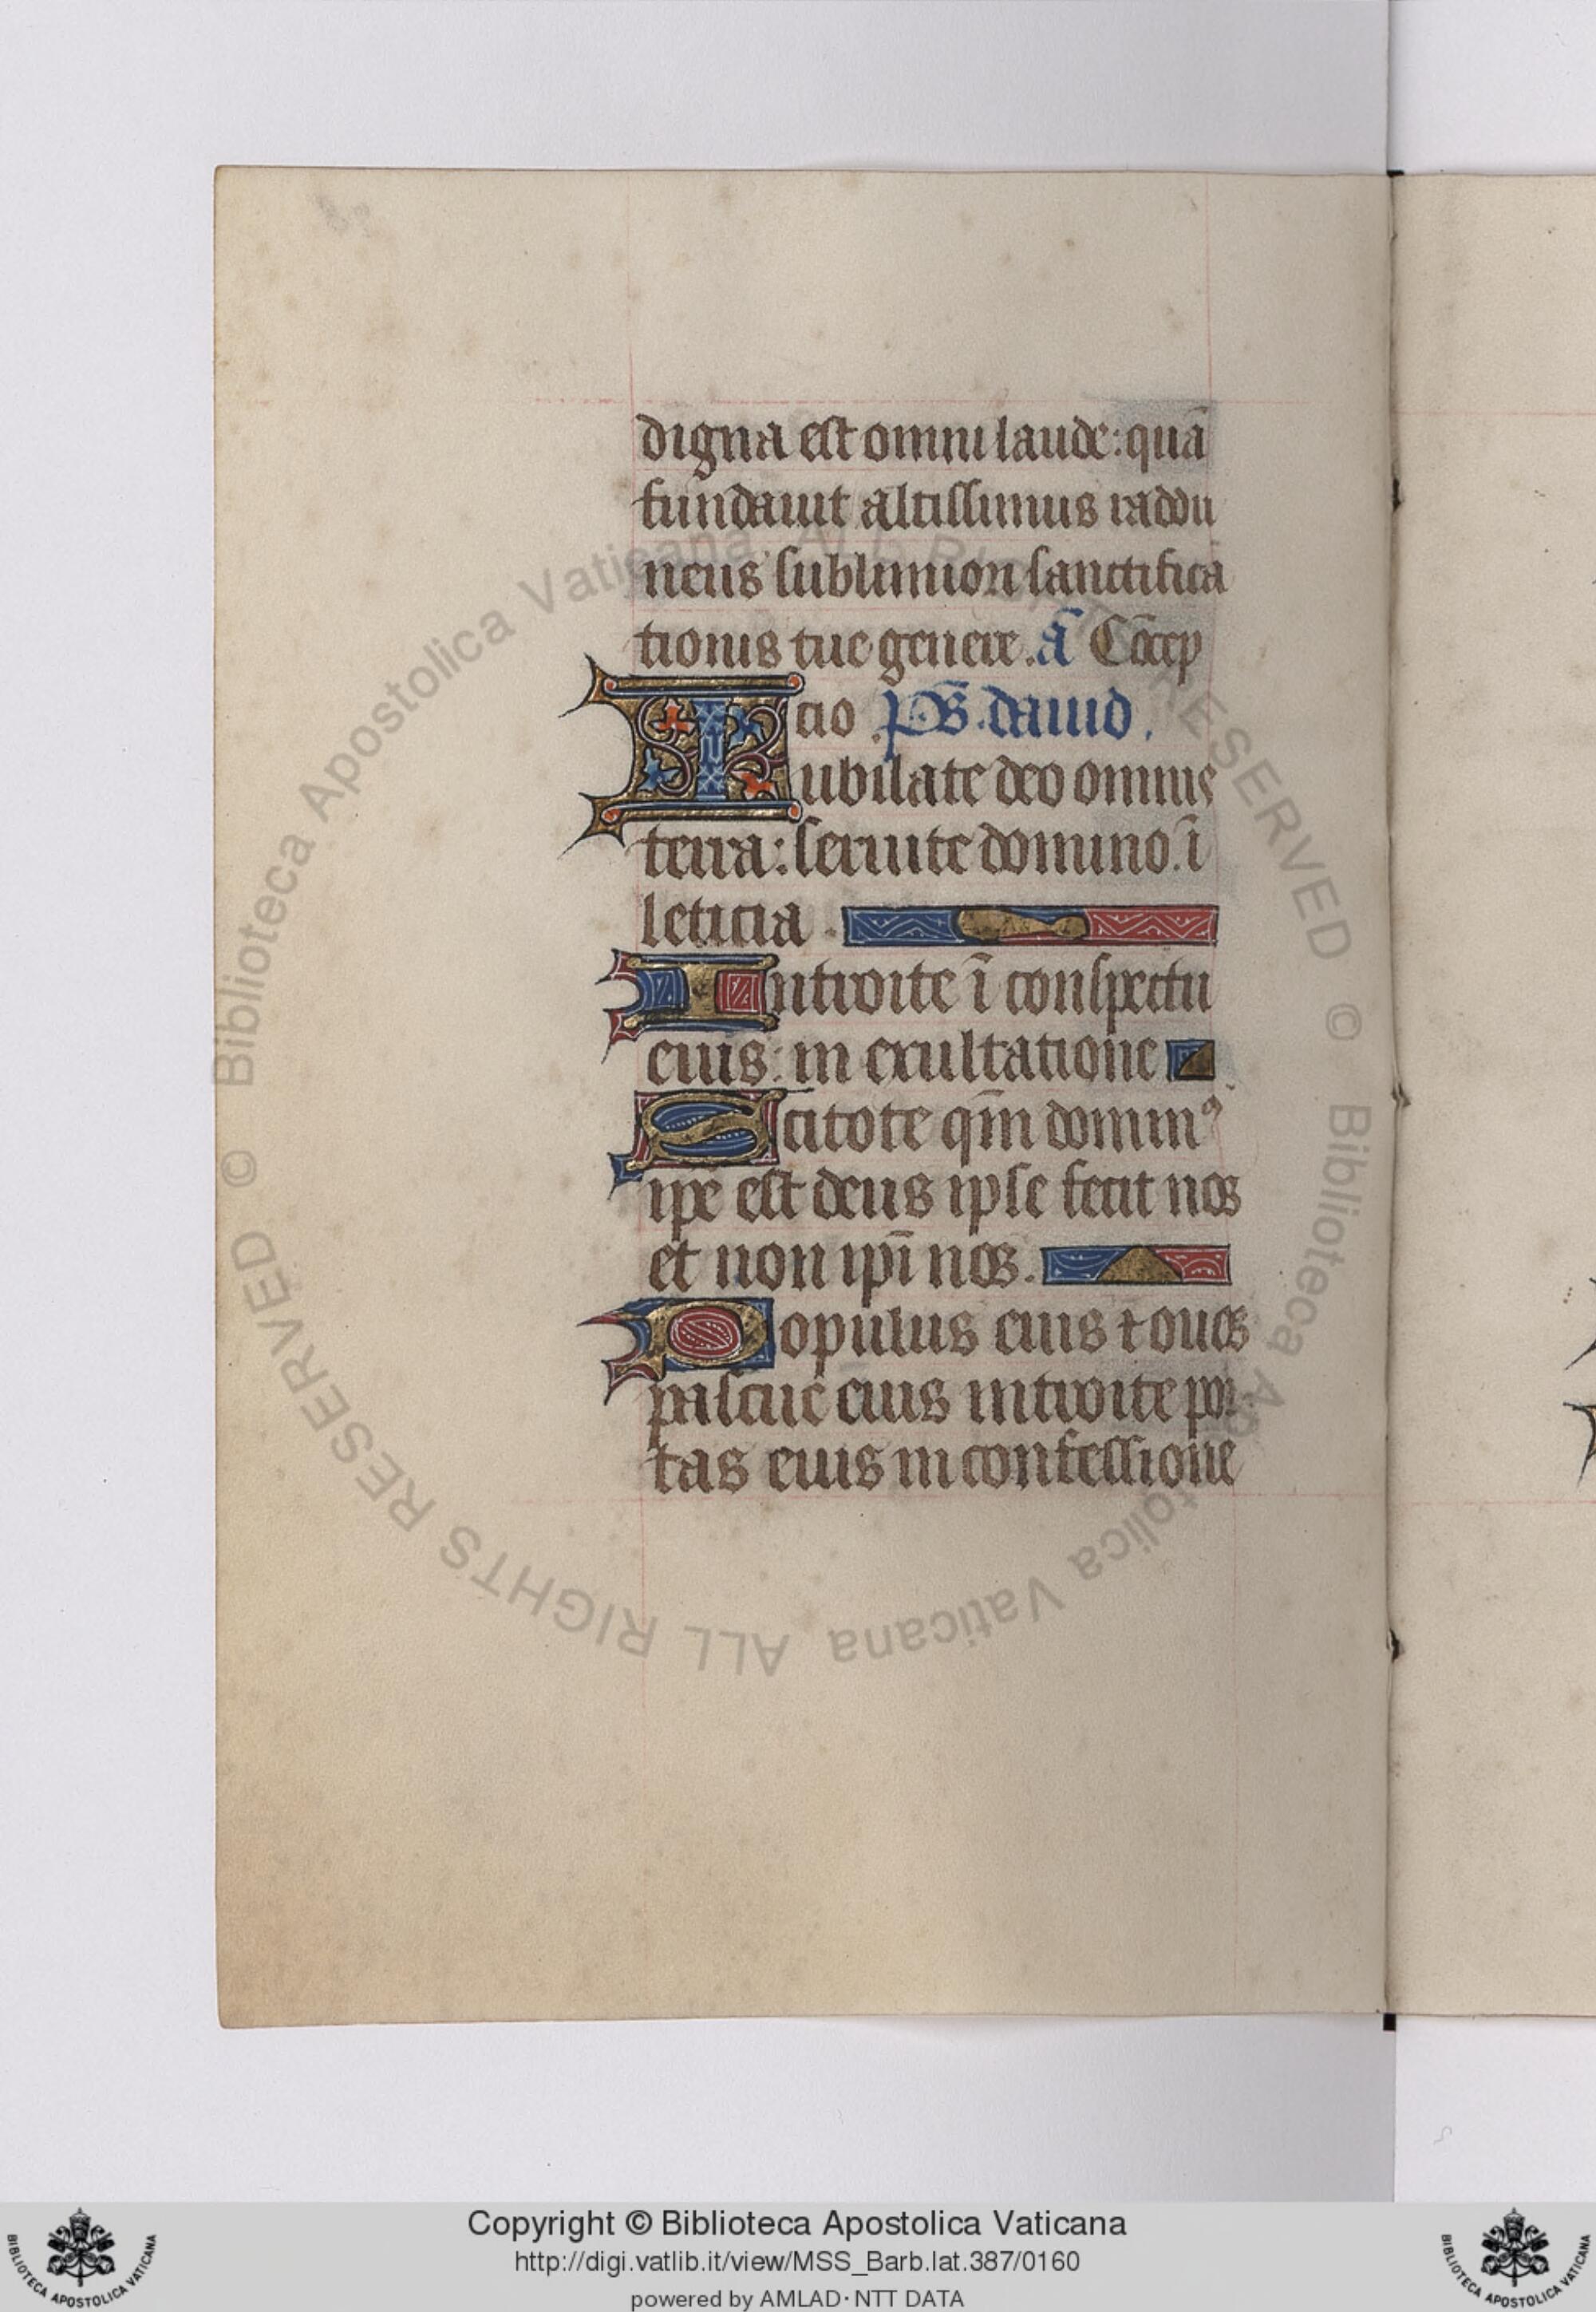 digna est omni laude: quā
fundauit altissimus
neus sublimion sanctifica
tionis tue genere. ā Cōcep
cio. ps̄. dauid.
Iubilate deo omnis
terra: seruite domino. ī
leticia.
Introite ī conspectu
eius: in exultatione
Scitote qm̄ dominꝰ
ip̄e est deus ipse fecit nos
et non ip̄i nos.
Populus eius ⁊ oues
pascue eius introite por
tas eius in confessione
© Biblioteca Apostolica Vaticana ALL RIGHTS RESERVED © Biblioteca Apostolica Vaticana ALL RIGHTS RESERVED
Copyright © Biblioteca Apostolica Vaticana
http://digi.vatlib.it/view/MSS_Barb.lat.387/0160
powered by AMLAD·NTT DATA
BIBLIOTECA APOSTOLICA VATICANA
BIBLIOTECA APOSTOLICA VATICANA